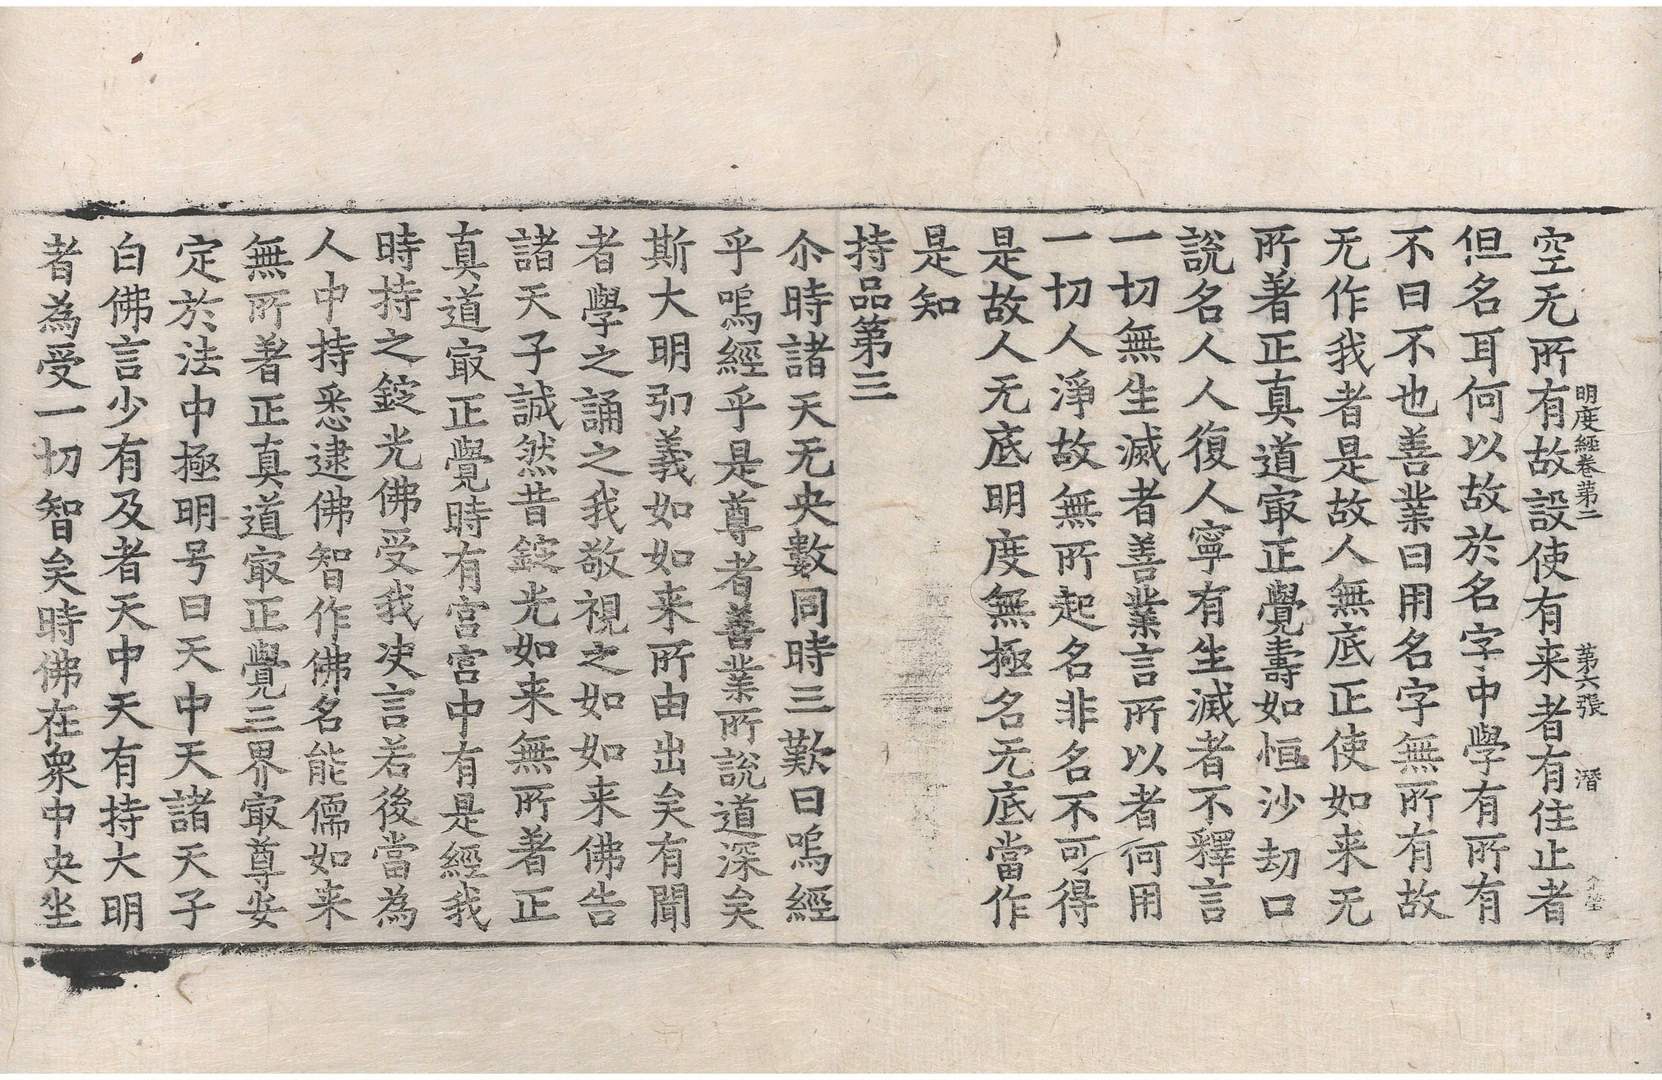 明度經卷第二 第六張 潛
空无所有故設使有来者有住止者
但名耳何以故於名字中學有所有
不曰不也善業曰用名字無所有故
无作我者是故人無底正使如来无
所著正真道㝡正覺壽如恒沙劫口
說名人人復人寧有生滅者不釋言
一切無生滅者善業言所以者何用
一切人淨故無所起名非名不可得
是故人无底明度無極名无底當作
是知
持品第三
尒時諸天无央數同時三歎曰嗚經
乎嗚經乎是尊者善業所說道深矣
斯大明所義如如来所由出矣有聞
者學之誦之我敬視之如如来佛告
諸天子誠然昔錠光如来無所著正
真道㝡正覺時有宮宮中有是經我
時持之錠光佛受我决言若後當為
人中持悉逮佛智作佛名能儒如来
無所著正真道㝡正覺三界㝡尊安
定於法中極明号曰天中天諸天子
白佛言少有及者天中天有持大明
者為受一切智矣時佛在衆中央坐